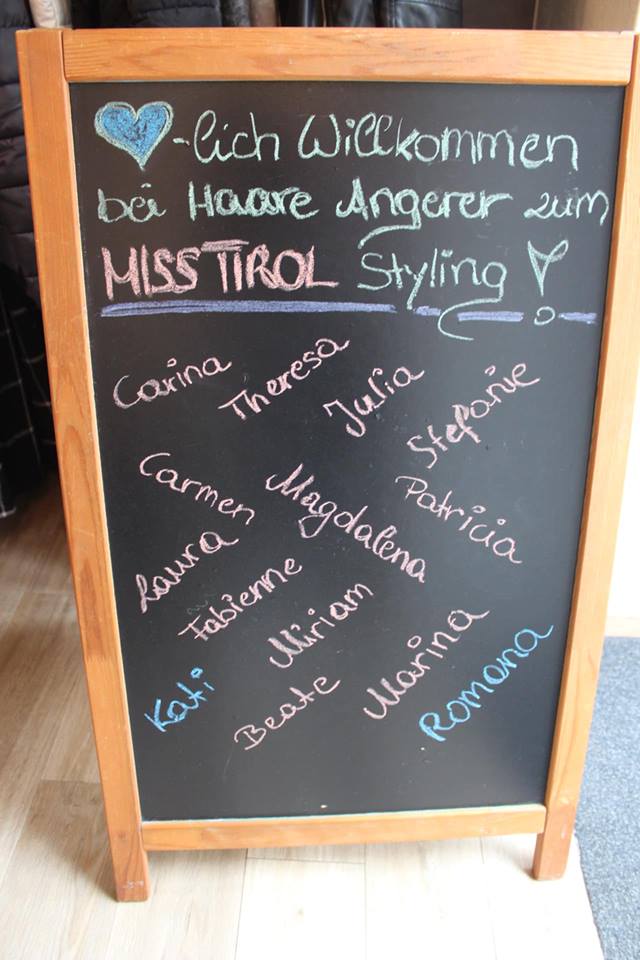 -lich Willkommen
bei Haare Angerer zum
MISS TIROL Styling!
Carina Theresa Julia Stefanie
Carmen Magdalena Patricia
Laura Fabienne Miriam Marina
Kati Beate Romana